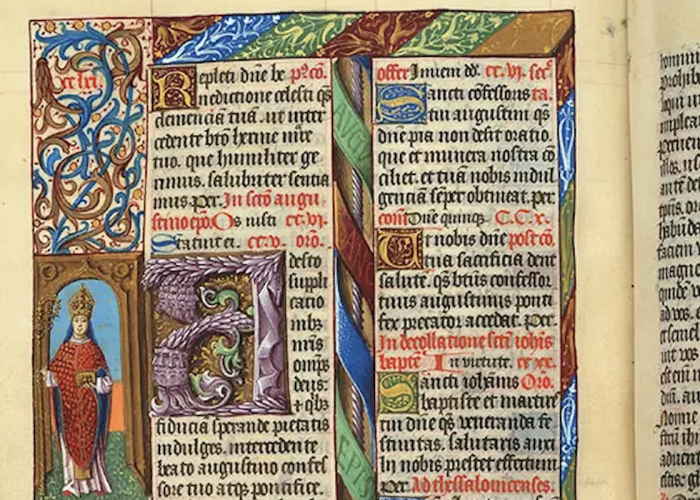 cc lxi.
Repleti dñe be p9 cõ.
nedictione celesti q̃s
clemenciã tuã. ut inter
cedente btõ hermе mr̃e
tuo. que humiliter ge
rimus. salubriter sentia
mus. Per. In sctõ augu
stino epõ. Os iusti cc. vi.
Statuit ei. cc. v. oro.
Adesto
suppli
catio
nibz
nr̃is
omp̃s
deus:
⁊ q̃bz
fiduciã sperande pietatis
indulges. intercedente
beato augustino confes
sore tuo atqz pontifice.
offer Inueni dd̃. cc. vi. sec̃
Sancti cõfessoris ta.
tui augustini q̃s
dñe pia non desit oratio.
que et munera nostra cõ
ciliet. et tuã nobis indul
genciã sẽper obtineat. per
com̃ Dñe quinqz. C. C. x.
Ut nobis dñe post cõ.
tua sacrificia dent
salutẽ. q̃s btũs confessor
tuus augustinus ponti
fex precator accedat. Per.
In decollatione scti iohis
baptẽ In virtute. cc xx.
Sancti iohanis Oro.
baptiste et martiris
tui dñe q̃s veneranda fe
stiuitas. salutaris auxi
lij nobis prestet effectum
per Ad thessalonicenses.